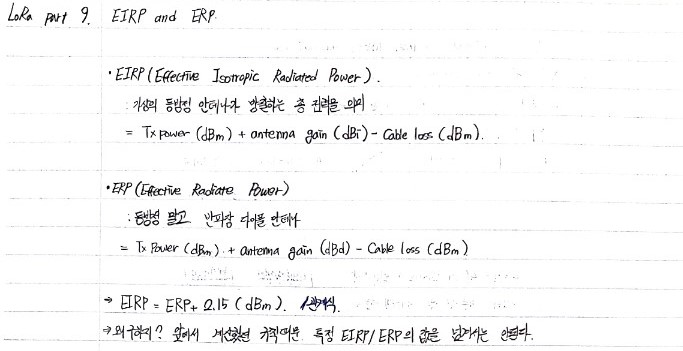 LoRa part 9. EIRP and ERP.
• EIRP (Effective Isotropic Radiated Power).
: 가상의 등방성 안테나가 방출하는 총 전력을 의미
= Tx power (dBm) + antenna gain (dBi) - Cable loss (dBm).
• ERP (Effective Radiate Power)
: 등방성 말고 반파장 다이폴 안테나
= Tx Power (dBm) + antenna gain (dBd) - Cable loss (dBm)
→ EIRP = ERP + 2.15 (dBm). 관계식.
→ 왜 구하지? 앞에서 계산했던 규칙때문 특정 EIRP/ERP의 값을 넘겨서는 안된다.